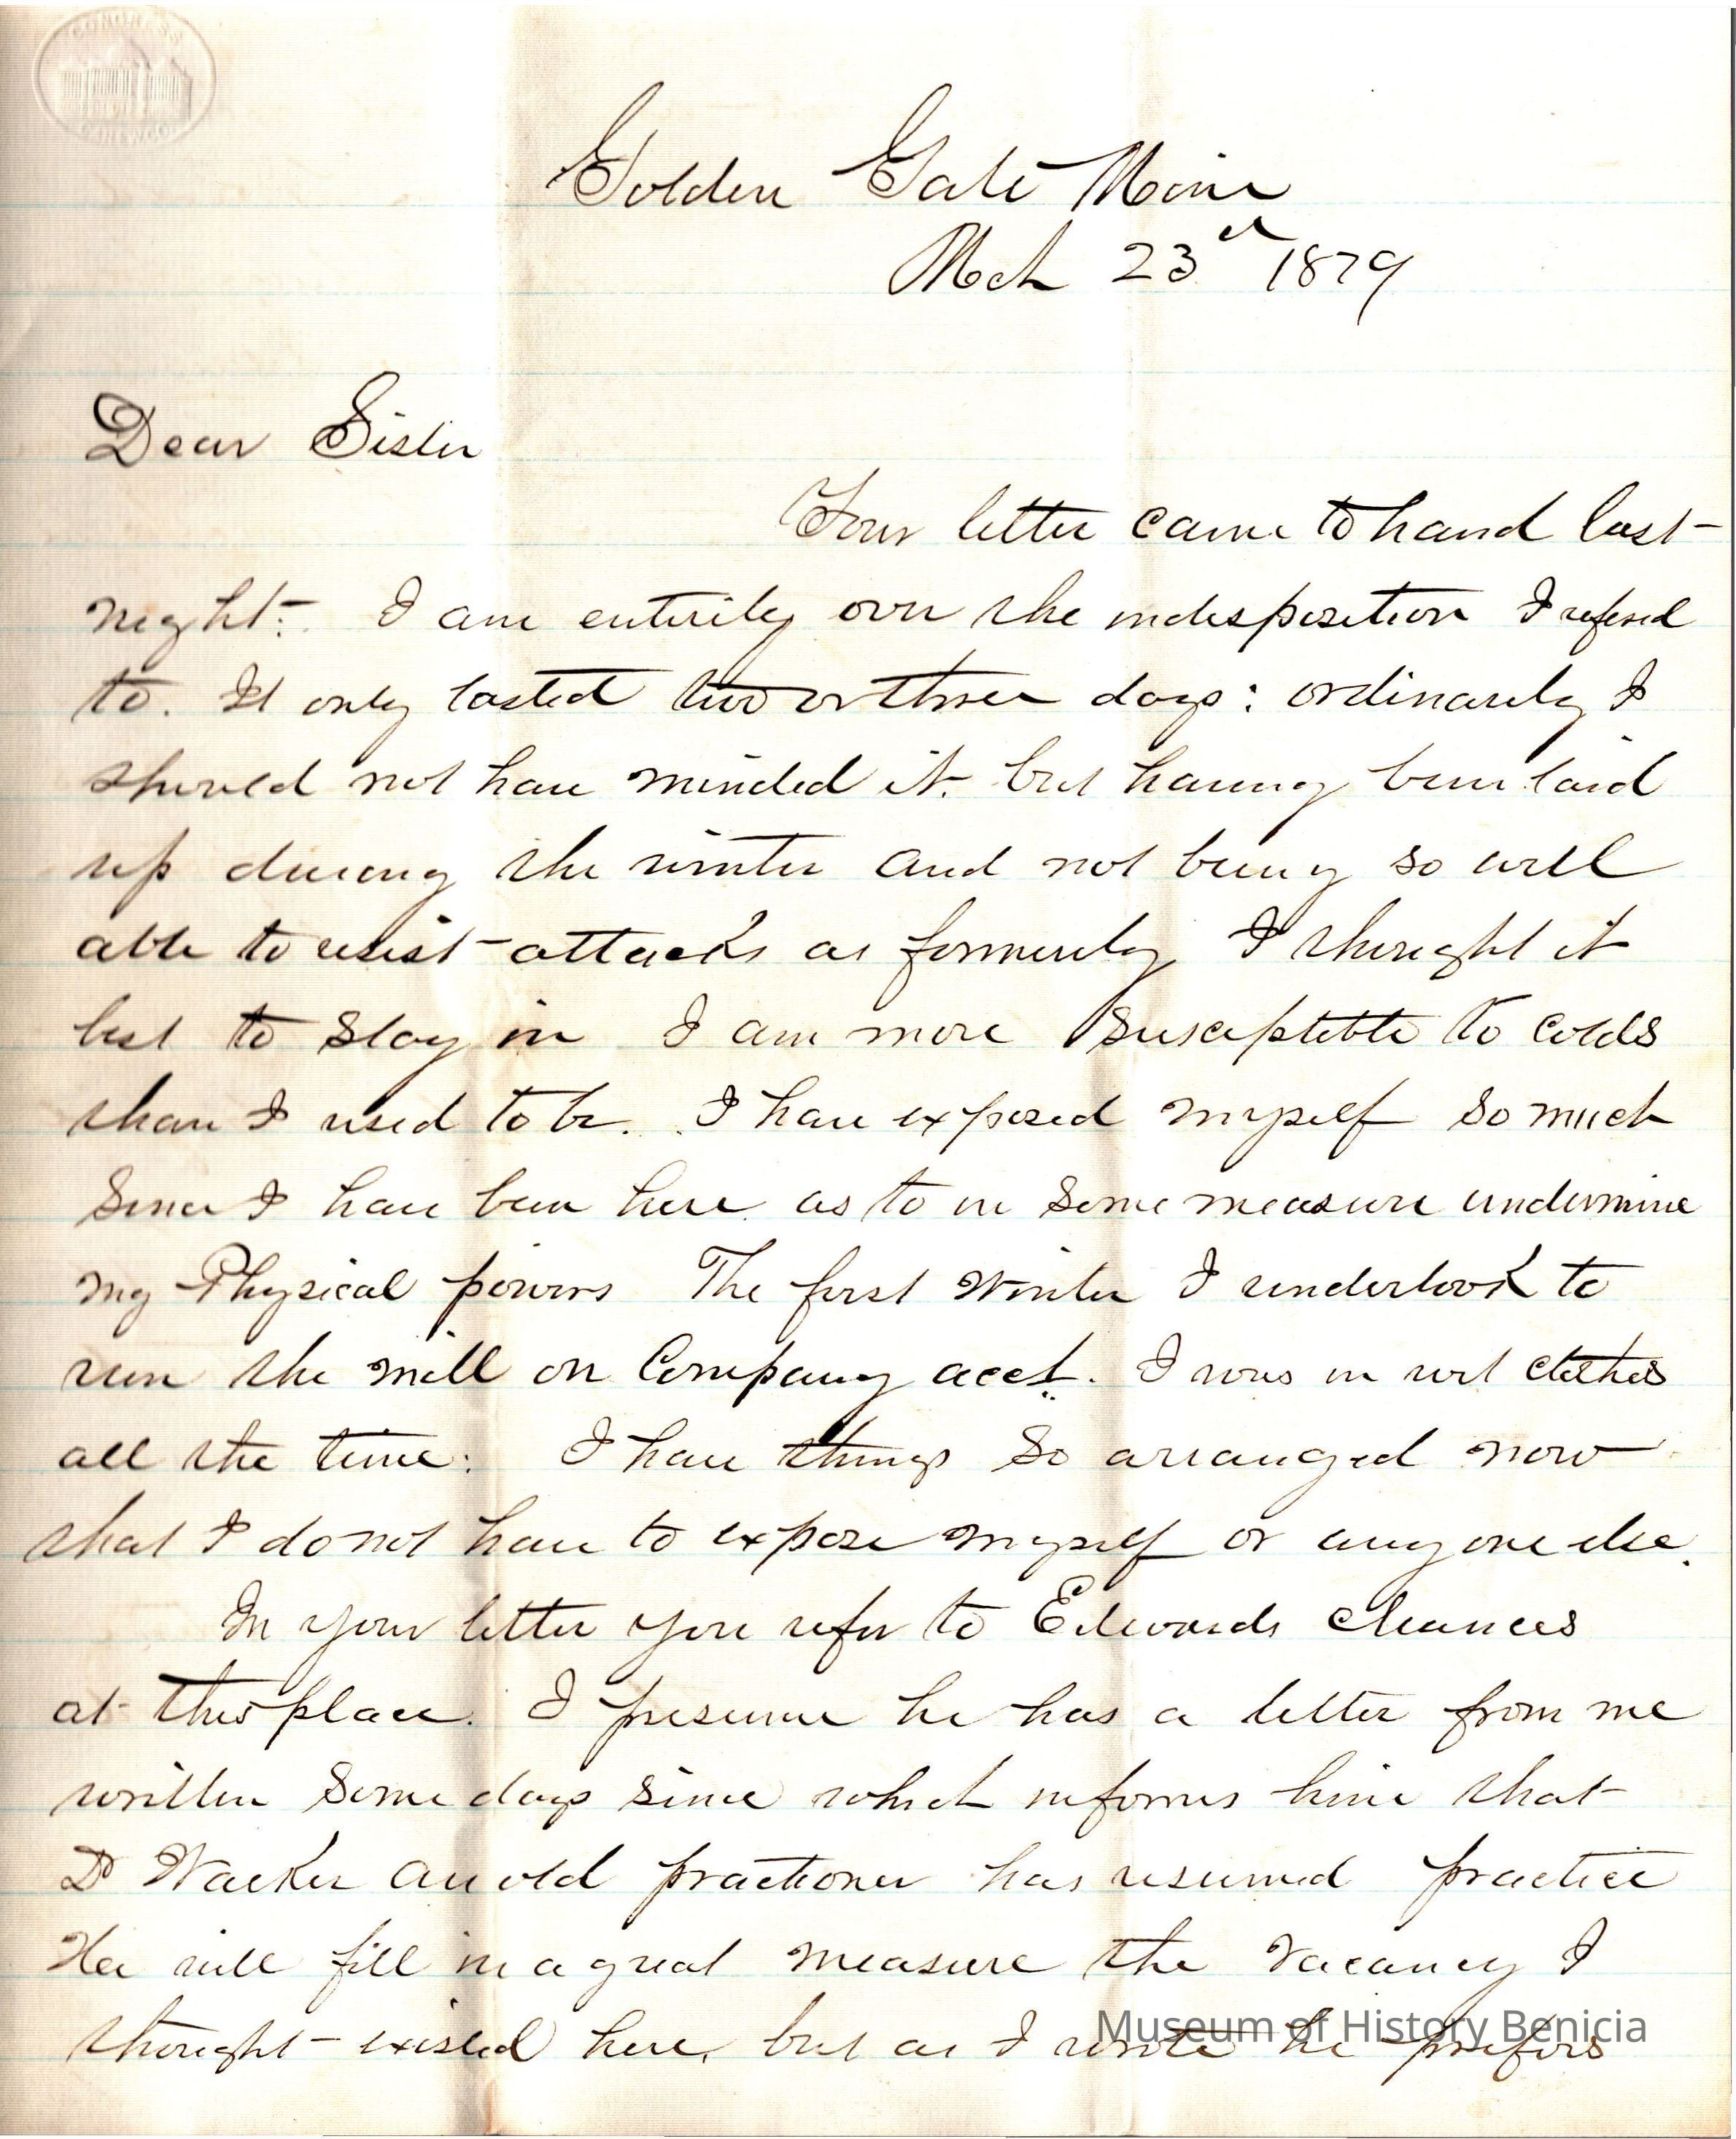 CONGRESS
Golden Gate Mine
Mch 23d 1879
Dear Sister
Your letter came to hand last
night. I am entirely over the indisposition I refered
to. It only lasted two or three days: ordinarily I
should not have minded it. but having been laid
up during the winter and not being so well
able to resist attacks as formerly I thought it
best to stay in I am more susceptible to colds
than I used to be. I have exposed myself so much
since I have been here as to in some measure undermine
my Physical powers The first winter I undertook to
run the mill on Company acct. I was in wet clothes
all the time: I have things so arranged now
that I do not have to expose myself or any one else.
In your letter you refer to Edwards chances
at this place. I presume he has a letter from me
written some days since which informs him that
D Walker an old practioner has resumed practice
He will fill in a great measure the vacancy I
thought existed here, but as I wrote he prefers
Museum of History Benicia